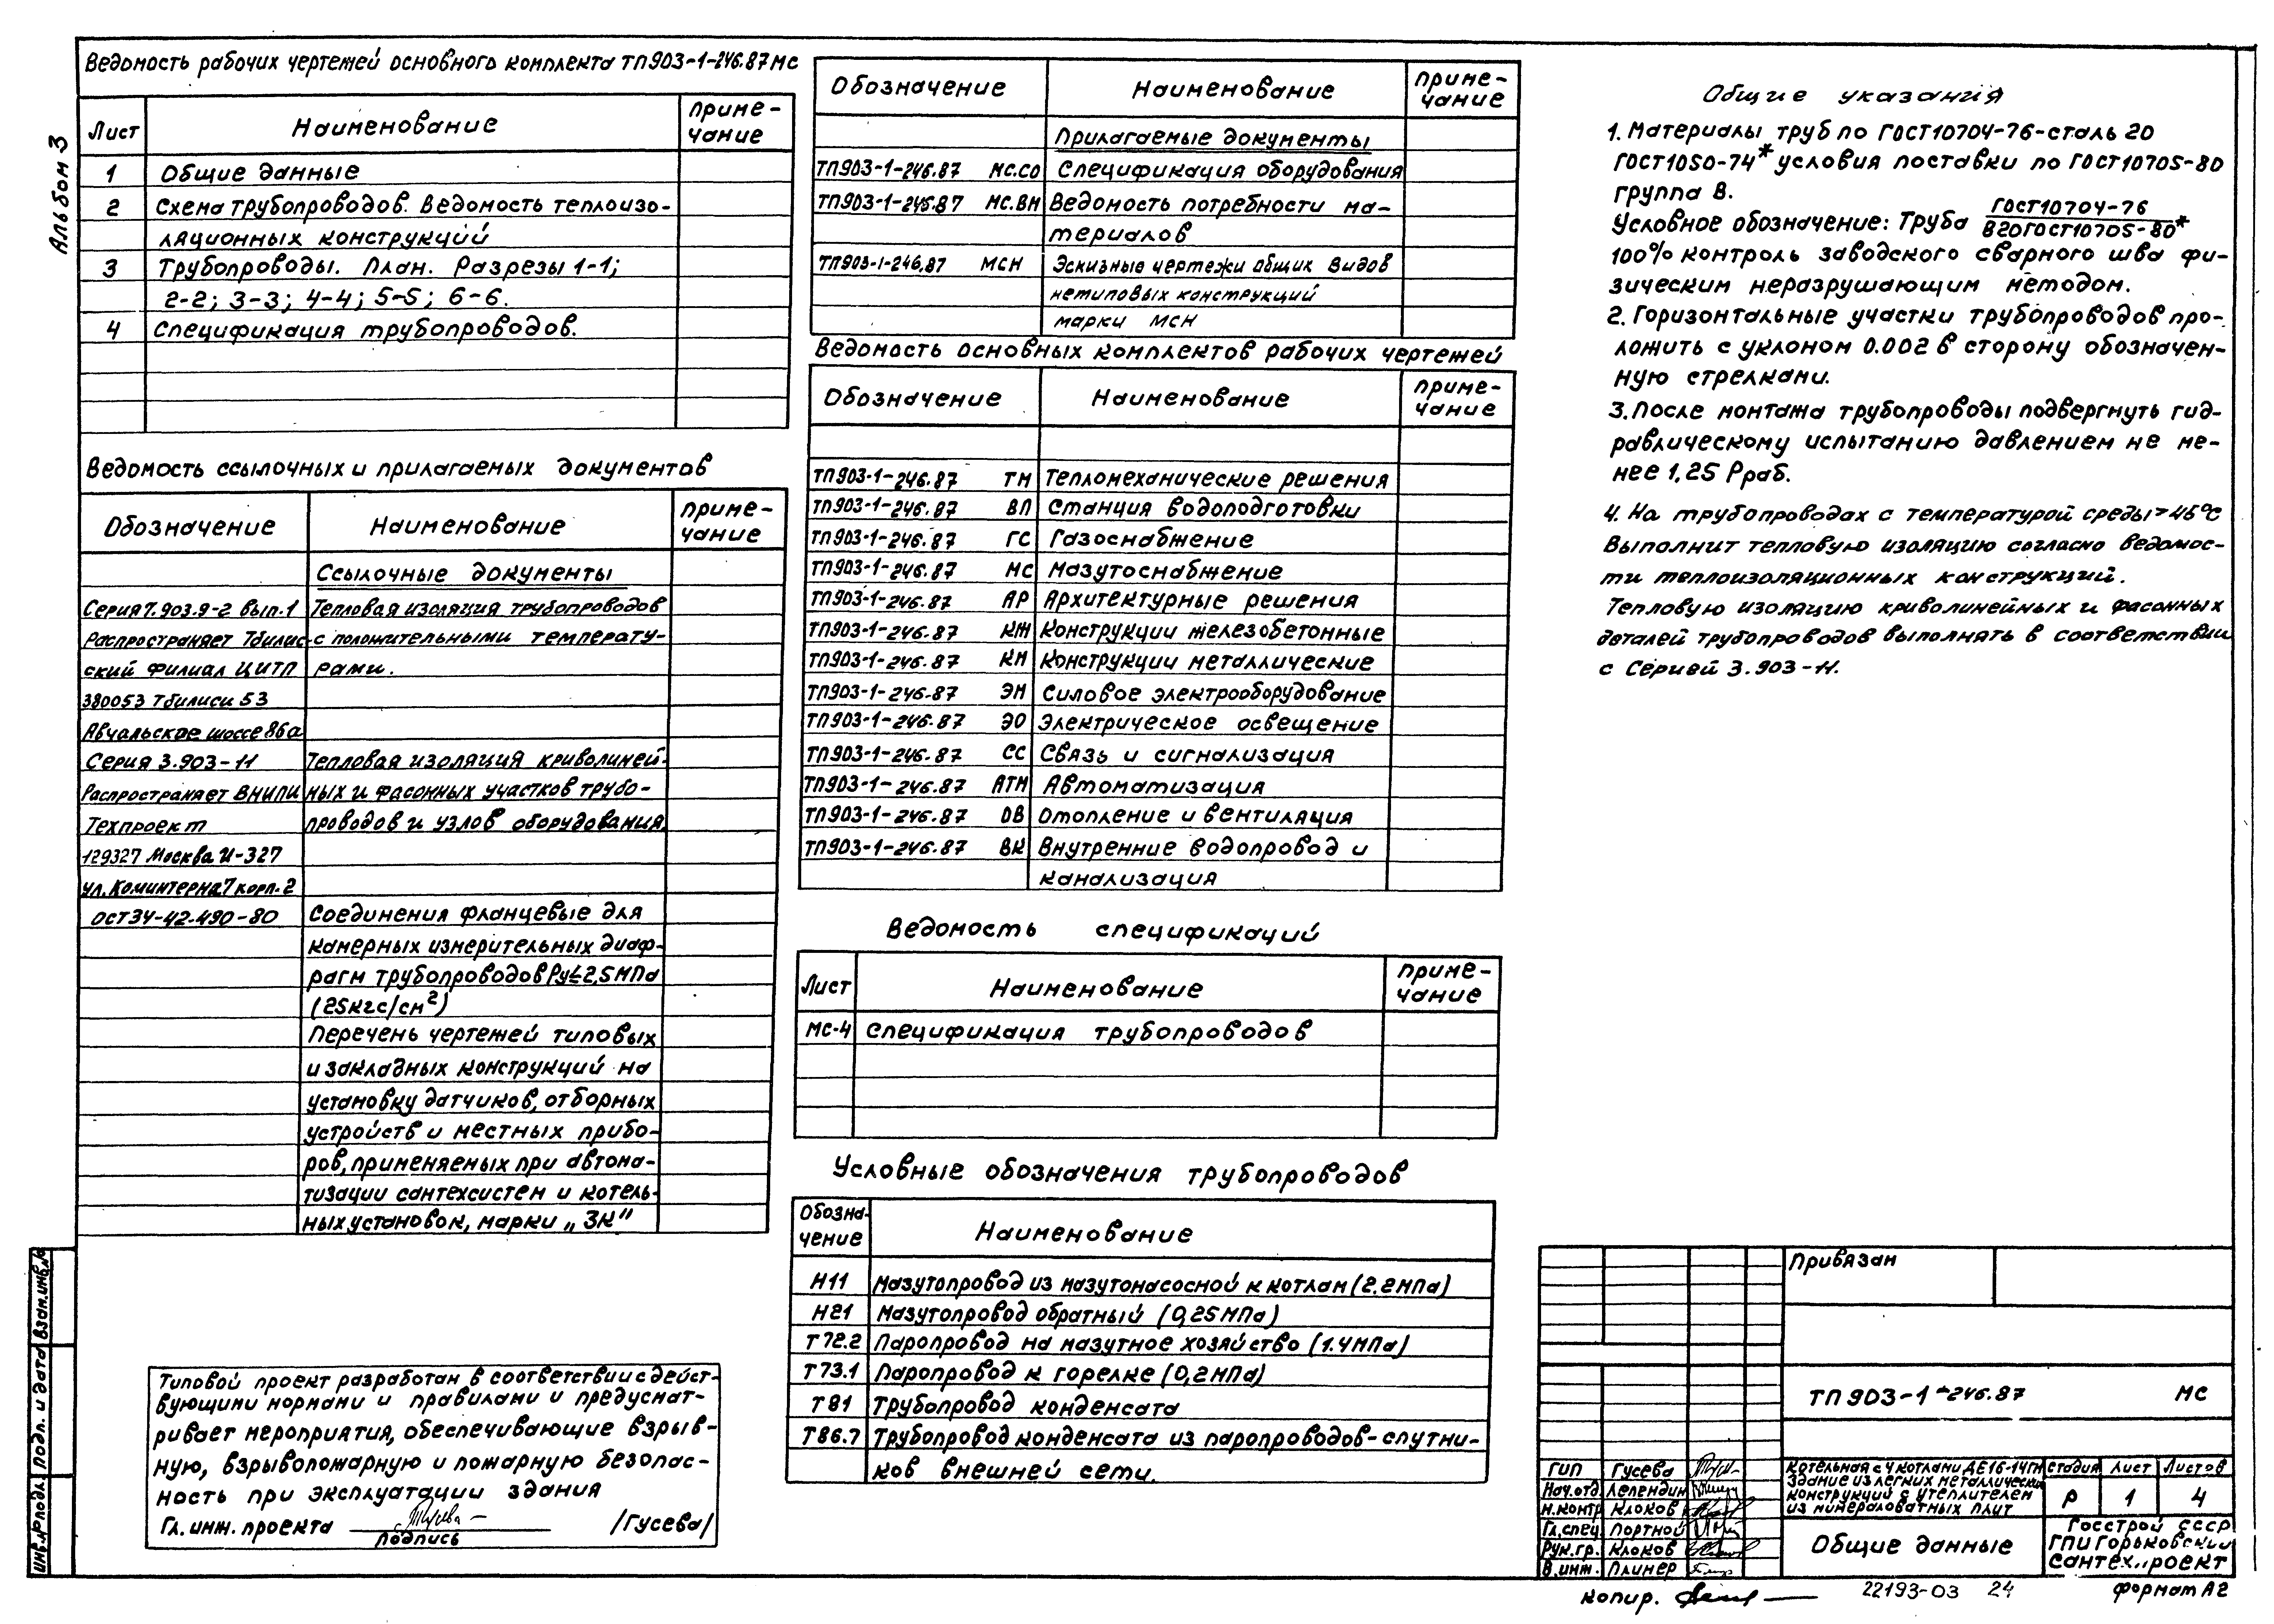 Альбом 3
Ведомость рабочих чертежей основного комплекта ТП903-1-246.87МС
Лист Наименование Приме-
чание
1 Общие данные
2 Схема трубопроводов. Ведомость теплоизо-
ляционных конструкций
3 Трубопроводы. План. Разрезы 1-1;
2-2; 3-3; 4-4; 5-5; 6-6.
4 Спецификация трубопроводов.
Ведомость ссылочных и прилагаемых документов
Обозначение Наименование Приме-
чание
Ссылочные документы
Серия 7.903.9-2 вып.1 Тепловая изоляция трубопроводов
Распространяет Тбилис- с положительными температу-
ский филиал ЦИТП рами.
380053 Тбилиси 53
Авчальское шоссе 86а
Серия 3.903-11 Тепловая изоляция криволиней-
Распространяет ВНИПИ ных и фасонных участков трубо-
Техпроект проводов и узлов оборудования.
129327 Москва И-327
ул. Коминтерна 7 корп. 2
ОСТ34-42.490-80 Соединения фланцевые для
камерных измерительных диаф-
рагм трубопроводов Ру≤2,5МПа
(25кгс/см²)
Перечень чертежей типовых
и закладных конструкций на
установку датчиков, отборных
устройств и местных прибо-
ров, применяемых при автома-
тизации сантехсистем и котель-
ных установок, марки „ЗК"
Типовой проект разработан в соответствии с дейст-
вующими нормами и правилами и предусмат-
ривает мероприятия, обеспечивающие взрыв-
ную, взрывопожарную и пожарную безопас-
ность при эксплуатации здания
Гл. инж. проекта /Гусева/
подпись
Обозначение Наименование Приме-
чание
Прилагаемые документы
ТП903-1-246.87 МС.СО Спецификация оборудования
ТП903-1-246.87 МС.ВМ Ведомость потребности ма-
териалов
ТП903-1-246.87 МСН Эскизные чертежи общих видов
нетиповых конструкций
марки МСН
Ведомость основных комплектов рабочих чертежей
Обозначение Наименование Приме-
чание
ТП903-1-246.87 ТМ Тепломеханические решения
ТП903-1-246.87 ВП Станция водоподготовки
ТП903-1-246.87 ГС Газоснабжение
ТП903-1-246.87 МС Мазутоснабжение
ТП903-1-246.87 АР Архитектурные решения
ТП903-1-246.87 КЖ Конструкции железобетонные
ТП903-1-246.87 КМ Конструкции металлические
ТП903-1-246.87 ЭМ Силовое электрооборудование
ТП903-1-246.87 ЭО Электрическое освещение
ТП903-1-246.87 СС Связь и сигнализация
ТП903-1-246.87 АТМ Автоматизация
ТП903-1-246.87 ОВ Отопление и вентиляция
ТП903-1-246.87 ВК Внутренние водопровод и
канализация
Ведомость спецификаций
Лист Наименование Приме-
чание
МС-4 Спецификация трубопроводов
Условные обозначения трубопроводов
Обозна-
чение Наименование
Н11 Мазутопровод из мазутонасосной к котлам (2.2МПа)
Н21 Мазутопровод обратный (0,25МПа)
Т72.2 Паропровод на мазутное хозяйство (1.4МПа)
Т73.1 Паропровод к горелке (0,2МПа)
Т81 Трубопровод конденсата
Т86.7 Трубопровод конденсата из паропроводов-спутни-
ков внешней сети.
Общие указания
1. Материалы труб по ГОСТ10704-76-сталь 20
ГОСТ1050-74* условия поставки по ГОСТ10705-80
группа В.
Условное обозначение: Труба ГОСТ10704-76
В20ГОСТ10705-80*
100% контроль заводского сварного шва фи-
зическим неразрушающим методом.
2. Горизонтальные участки трубопроводов про-
ложить с уклоном 0.002 в сторону обозначен-
ную стрелками.
3. После монтажа трубопроводы подвергнуть гид-
равлическому испытанию давлением не ме-
нее 1,25 Рраб.
4. На трубопроводах с температурой среды >45°С
Выполнит тепловую изоляцию согласно ведомос-
ти теплоизоляционных конструкций.
Тепловую изоляцию криволинейных и фасонных
деталей трубопроводов выполнять в соответствии
с Серией 3.903-11.
Привязан
ТП 903-1-246.87 МС
ГИП Гусева
Нач.отд. Лепендин
Н.контр Клоков
Гл.спец. Портной
Рук.гр. Клоков
В.инж. Плинер
Котельная с 4 котлами ДЕ16-14ГМ
Здание из легких металлических
конструкций с утеплителем
из минераловатных плит
Стадия Лист Листов
Р 1 4
Общие данные
Госстрой СССР
ГПИ Горьковский
Сантехпроект
Копир. 22193-03 24 Формат А2
Инв.№ подл. Подп. и дата Взам.инв.№